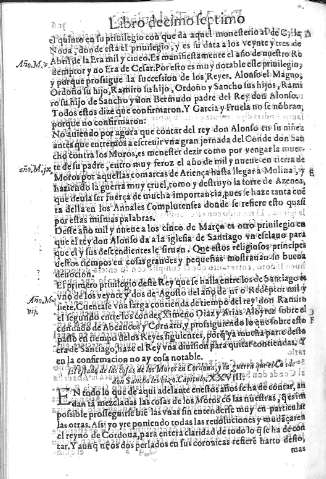 Libro decimo septimo
el quinto en su priuilegio con que da aquel monesterio al de Cilla
Noua, donde està el priuilegio, y es su data a los veynte y tres de
Año, M,v
Abril de la Era mil y cinco. Es manifiestamente el año de nuestro Re
demptor y no Era de Cesar. Por esto es muy notable este priuilegio,
y porque prosigue la succession de los Reyes. Alonso el Magno,
Ordoño su hijo, Ramiro su hijo, Ordoño y Sancho sus hijos, Rami
ro su hijo de Sancho y don Bermudo padre del Rey don Alonso.
Todos estos dize que confirmaron. Y Garcia y Fruela no se nõbran,
porque no confirmaron.
No auiendo por agora que contar del rey don Alonso en su niñez
antes que entremos a escreuir vna gran jornada del Conde don San
cho contra los Moros, es menester dezir como por vengar la muer
te de su padre, entro muy feroz el año de mil y nueue en tierra de
año, M,ix
Moros por aquellas comarcas de Atiença hasta llegar à Molina, y
haziendo la guerra muy cruel, como y destruyo la torre de Azenea,
que deuia ser fuerça de mucha importancia, pues se haze tanta cuẽ
ta della en los Annales Complutenses donde se refiere esto quasi
por estas mismas palabras.
Desde año mil y nueue a los cinco de Março es otro priuilegio en
que el rey don Alonso da a la iglesia de Santiago vn esclauo para
que el y sus descendientes le siruan. Que estos religiosos principes
destos tiempos en cosas grandes y pequeñas mostrauan su buena
deuocion.
El primero priuilegio deste Rey que se halla entre los de Santiago es
vno de los veynte y dos de Agosto del año de nro Redẽptor mil y
siete. Cuentase vna larga contienda de tiempo del rey don Ramiro
el segundo entre los condes Ximeno Diaz y Arias Aloytez sobre el
condado de Abeancos y Cornato, y prosiguiendo lo que sobre esto
passo en tiempo de los Reyes siguientes, por q ya mucha parte desto
era de Santiago, haze el Rey vna diuision para quitar contiendas, Y
en la confirmacion no ay cosa notable.
don Sancho les hizo. Capitulo, XXVIII.
EN todo lo que de aqui adelante en estos años se ha de contar, an
dan tã mezcladas las cosas de los Moros cõ las nuestras, q es im
possible proseguirse las vnas sin entenderse muy en particular
las otras. Asi yo yre poniendo todas las reuoluciones y mudãças en
el reyno de Cordoua, para entera claridad de todo lo que se ha de con
tar. Y aunq nros dos perlados en sus coronicas refierẽ harto desto,
mas